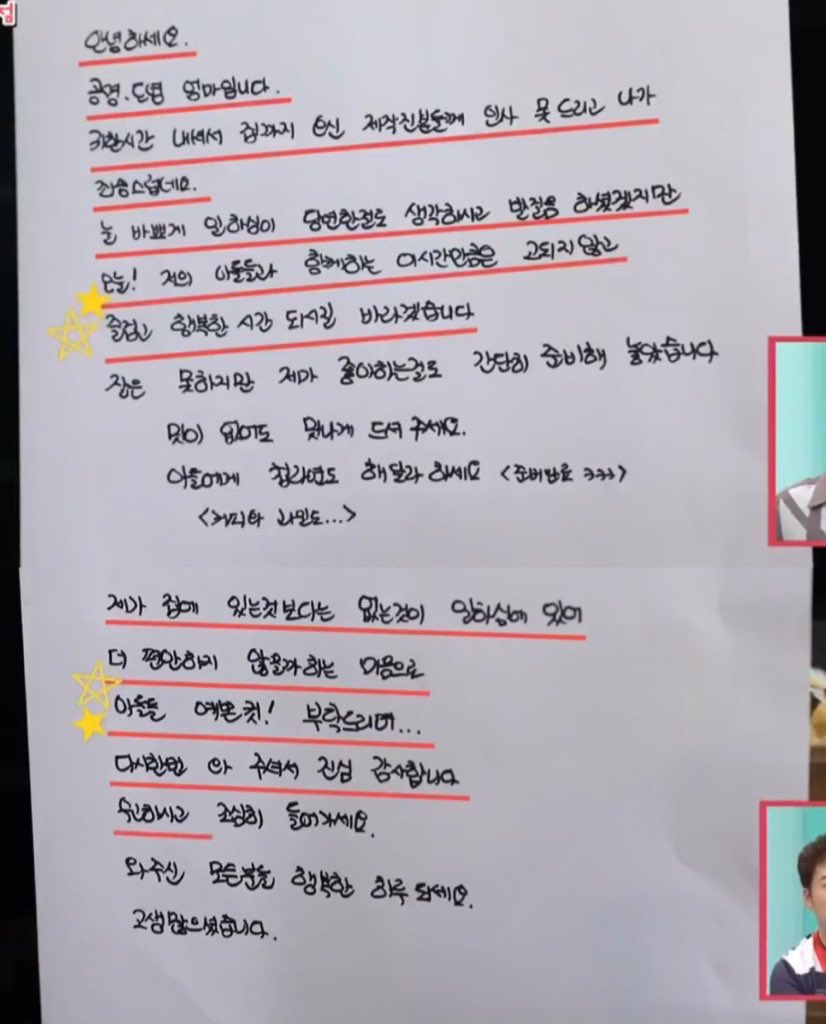 점
안녕하세요.
공명.도영 엄마입니다.
귀한시간 내셔서 집까지 오신 제작진분들께 인사 못 드리고 나가
죄송스럽네요.
늘 바쁘게 일하심이 당연한걸로 생각하시고 발걸음 하셨겠지만
오늘! 저의 아들들과 함께하는 이시간만큼은 고되지 않고
즐겁고 행복한 시간 되시길 바라겠습니다
잘은 못하지만 제가 좋아하는걸로 간단히 준비해 놓았습니다
맛이 없어도 맛나게 드셔 주세요.
아들에게 집라면도 해달라 하세요 <준비완료 ㅋㅋㅋ>
<커피와 라면도...>
제가 집에 있는것보다는 없는것이 일하심에 있어
더 편안하지 않을까하는 마음으로
아들들 예쁜컷! 부탁드리며...
다시한번 와 주셔서 진심 감사합니다
수고하시고 조심히 들어가세요.
와주신 모든분들 행복한 하루 되세요.
고생많으셨습니다.